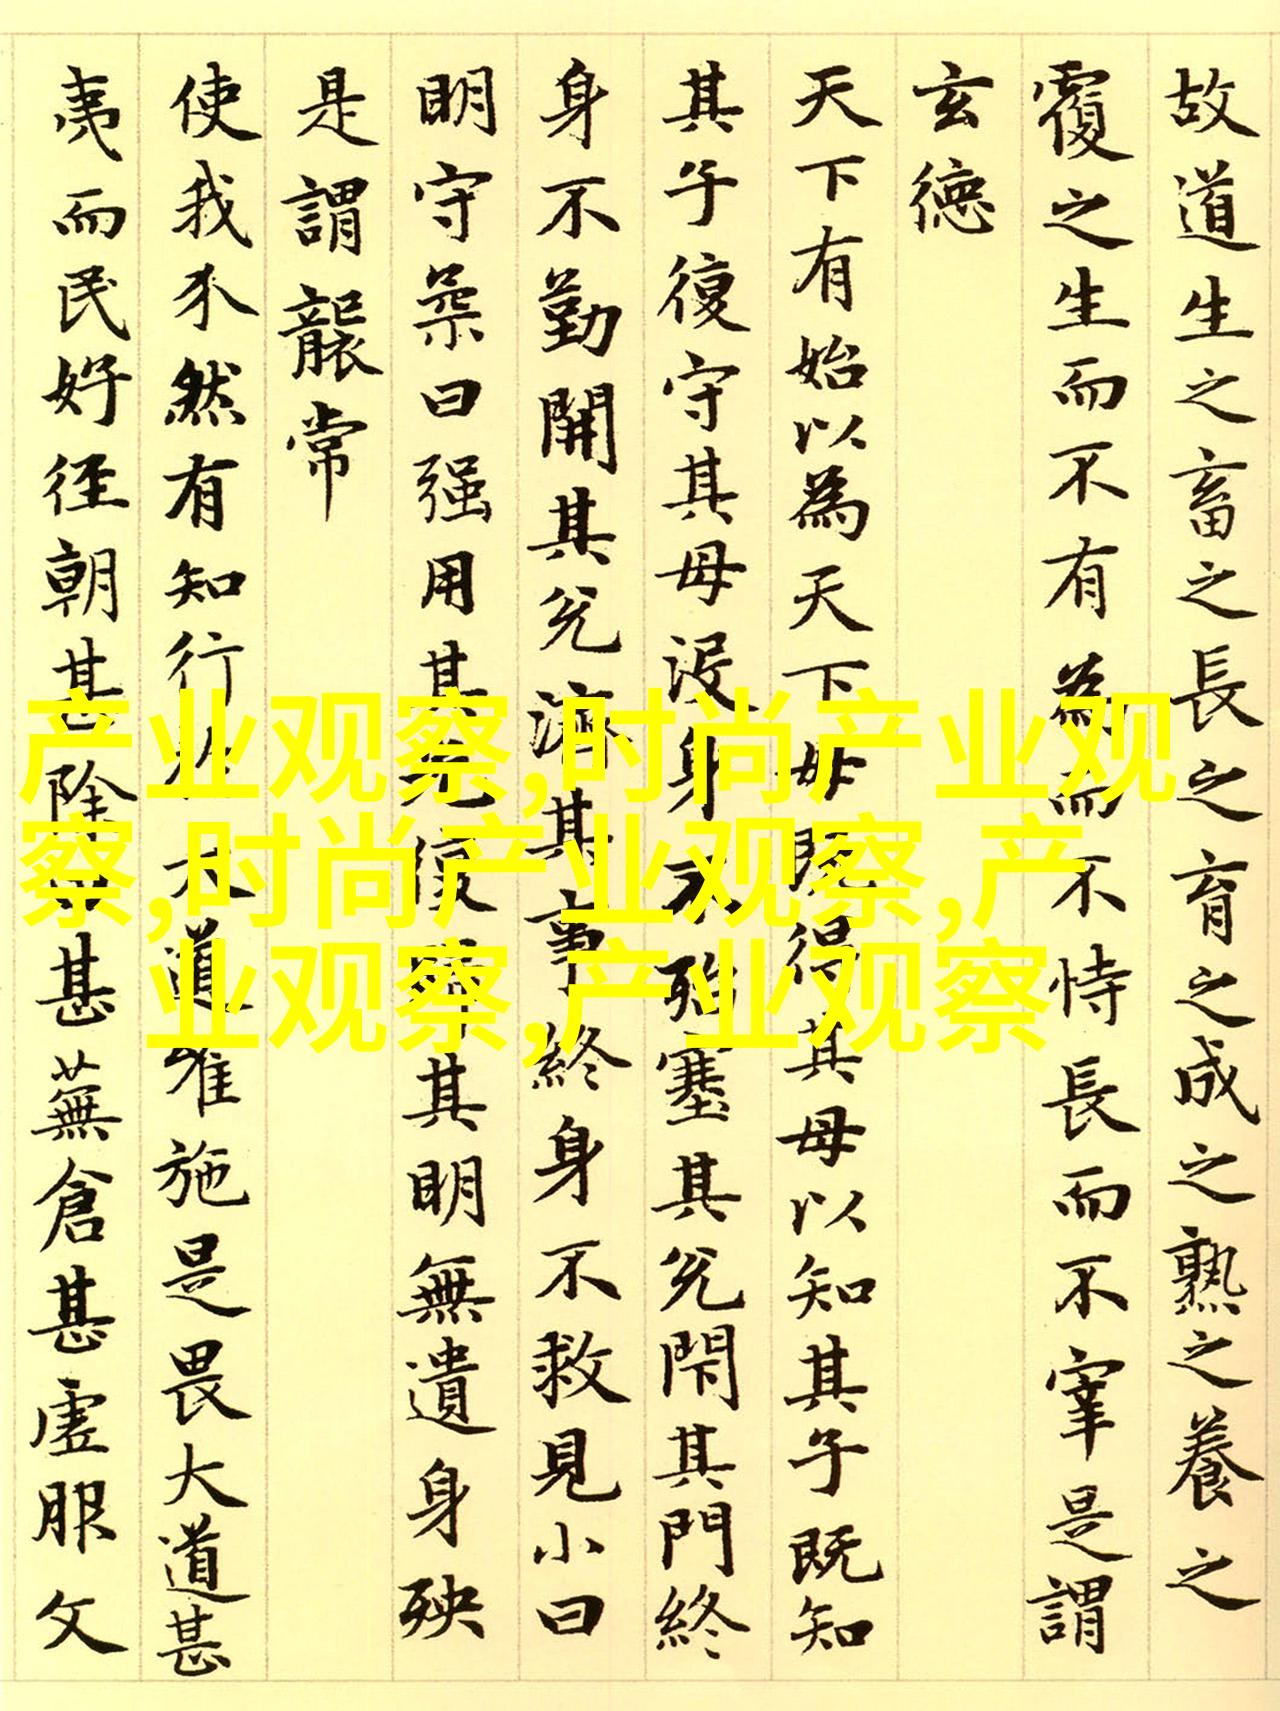 故道生之畜之長之育之成之熟之養之
覆之生而不有為而不恃長而不宰是謂
玄德
天下有始以為天下母既得其母以知其子既知
其子復守其母没身不殆塞其兊閇其門終
身不勤開其兊濟其事終身不救見小曰
明守柔曰强用其光復歸其明無遺身殃
是謂襲常
使我介然有知行於大道唯施是畏大道甚
夷而民好徑朝甚除田甚蕪倉甚虛服文
产业观察,时尚产业观
察,时尚产业观察,产
业观察,产业观察